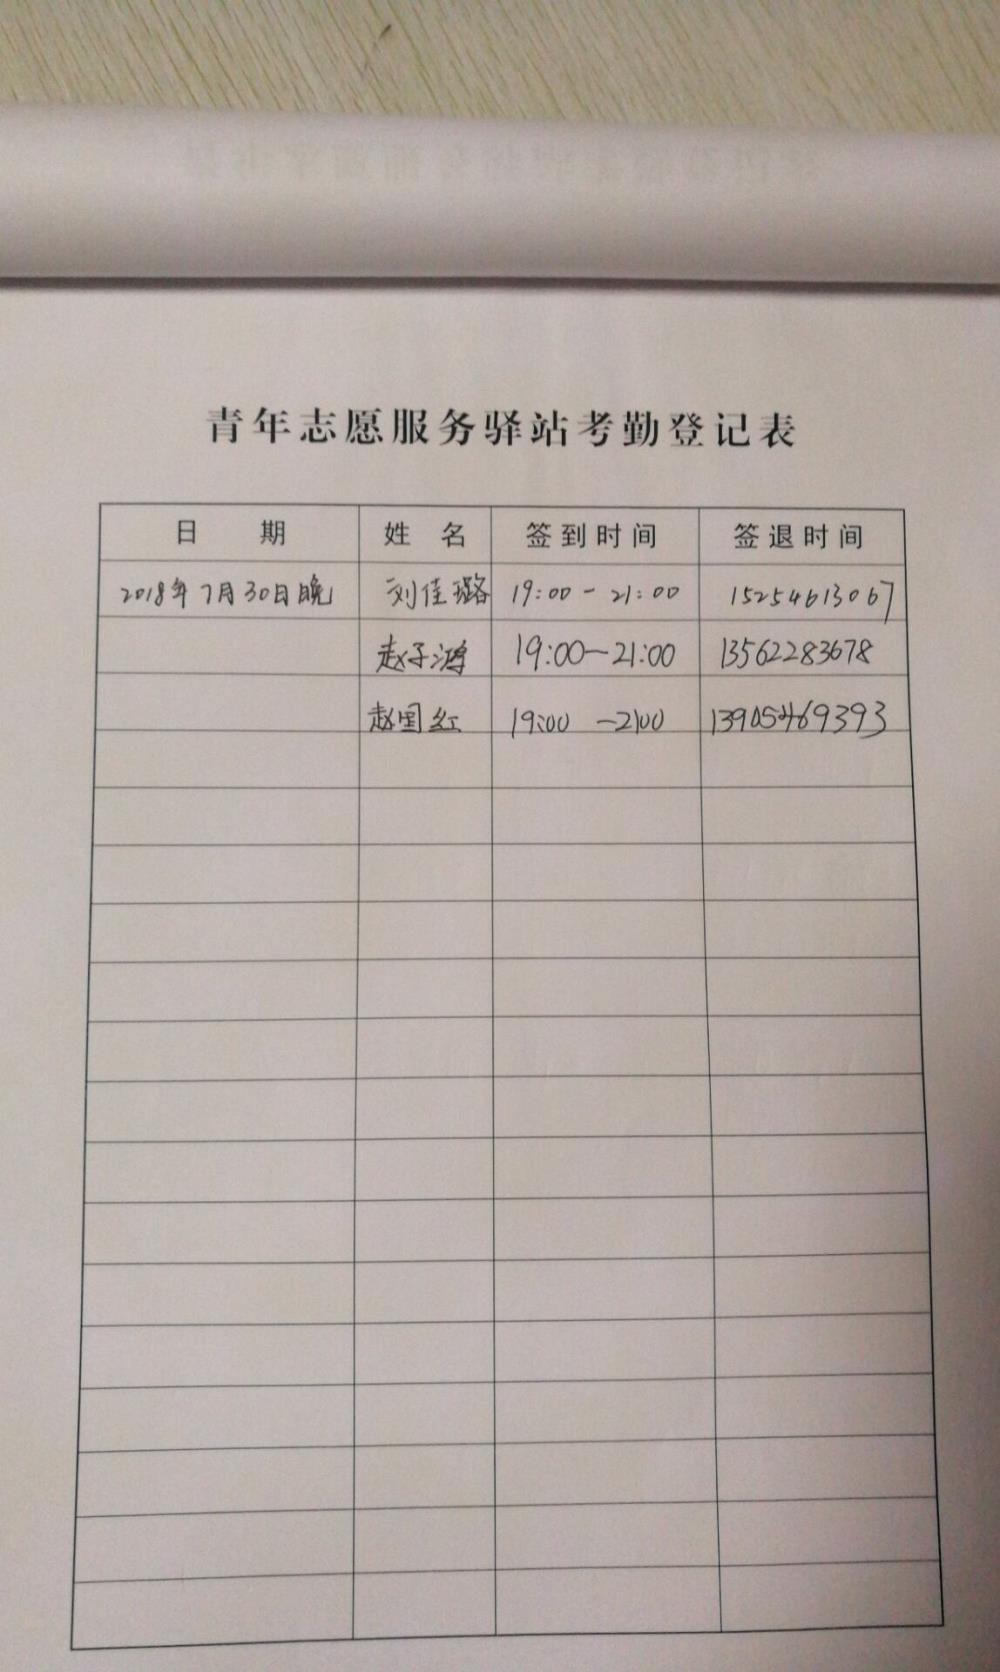 青年志愿服务驿站考勤登记表
日 期 姓 名 签到时间 签退时间
2018年7月30日晚 刘佳璐 19:00-21:00 15254613067
赵子鸿 19:00-21:00 13562283678
赵国红 19:00 -2100 13905469393